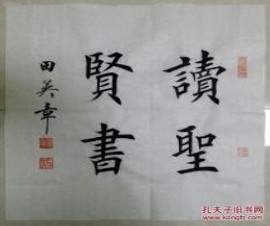 讀聖
賢書
田英章
孔夫子旧书网